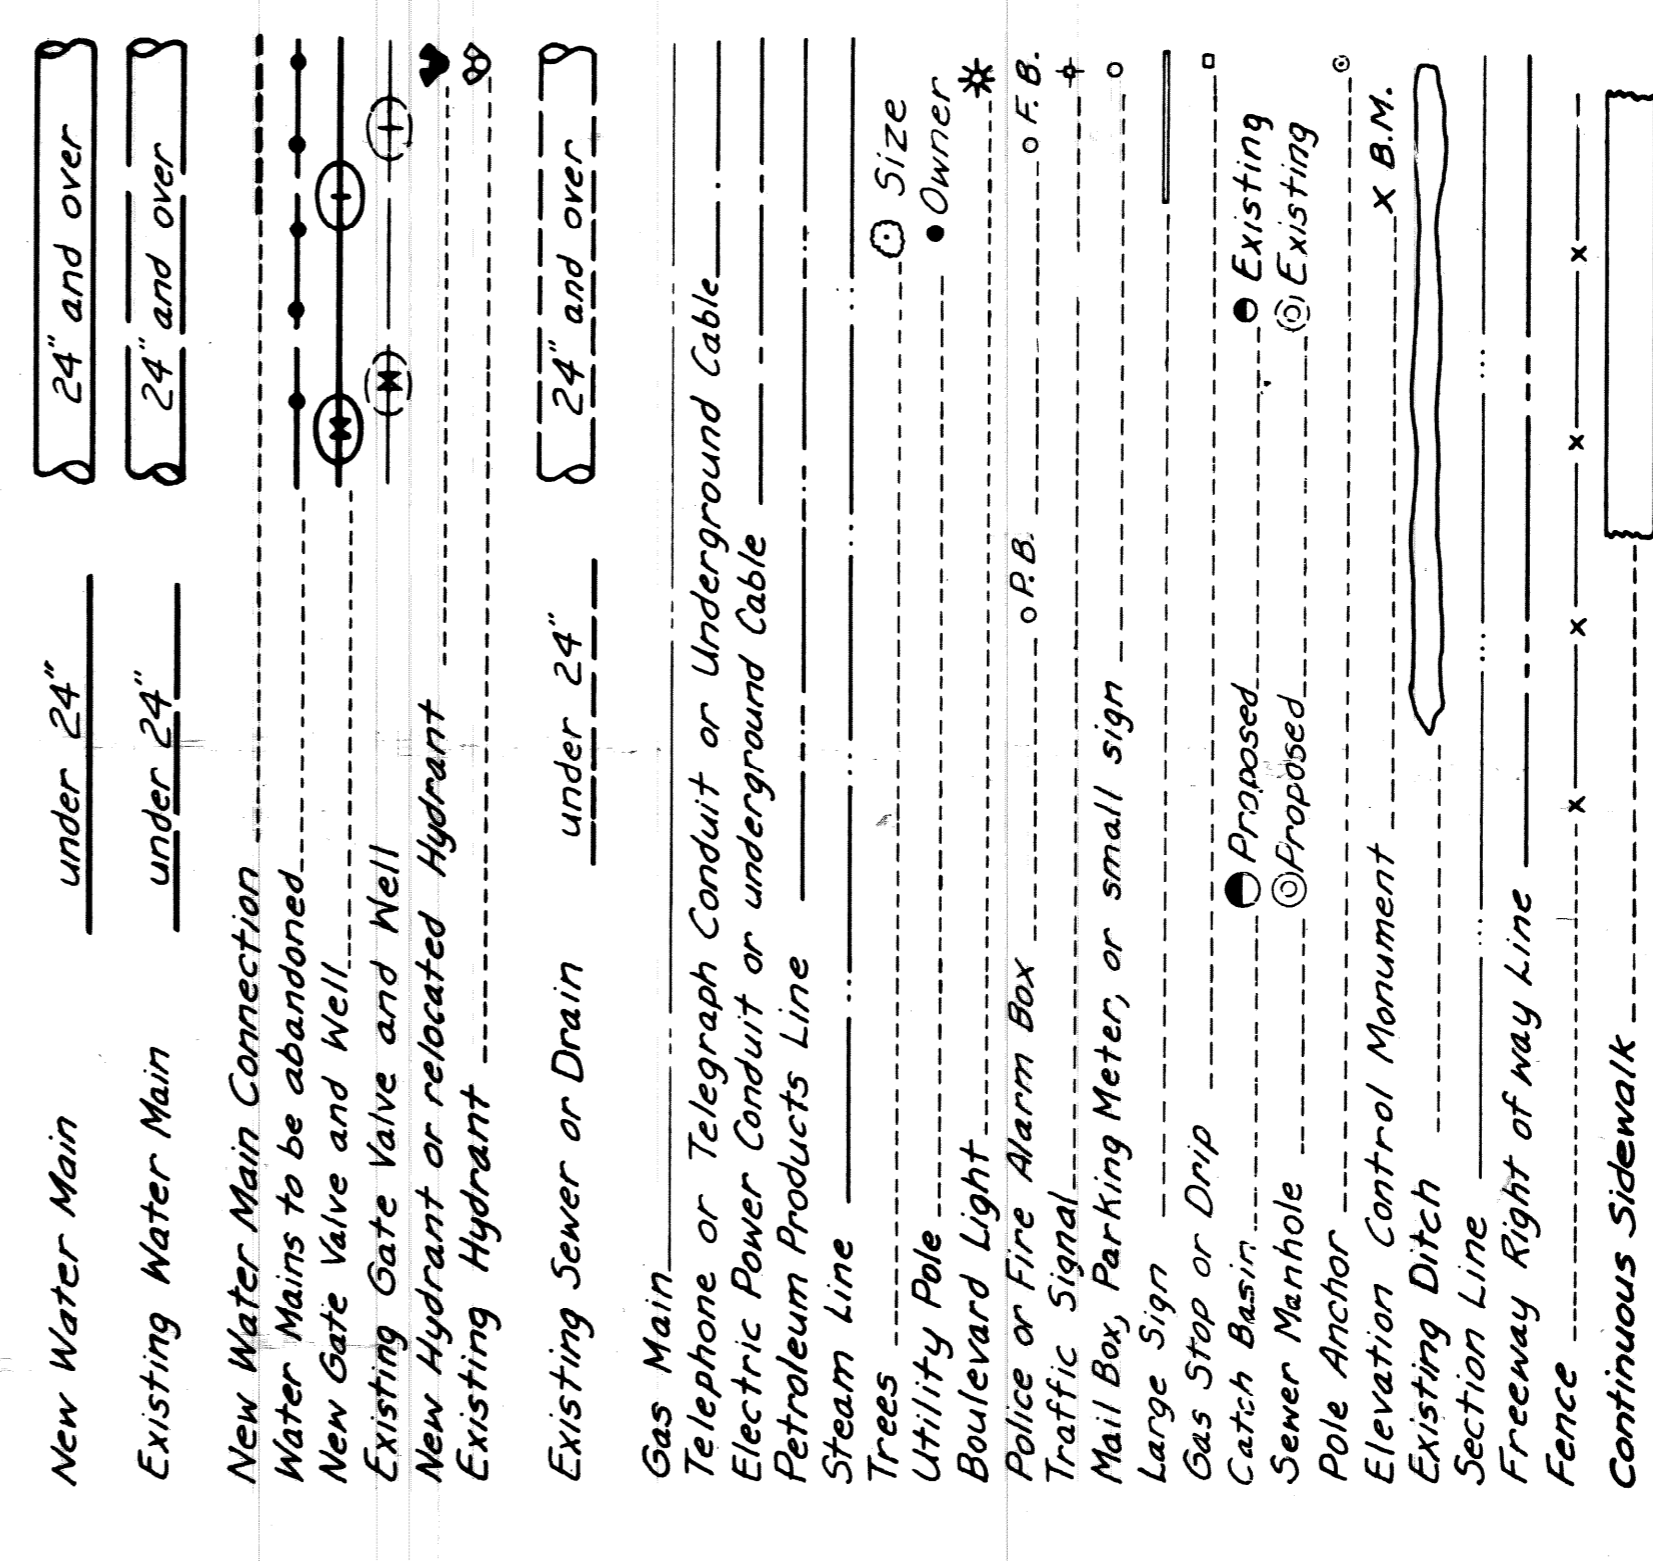 New Water Main under 24" 24" and over
Existing Water Main under 24" 24" and over
New Water Main Connection
Water Mains to be abandoned
New Gate Valve and Well
Existing Gate Valve and Well
New Hydrant or relocated Hydrant
Existing Hydrant
Existing Sewer or Drain under 24" 24" and over
Gas Main
Telephone or Telegraph Conduit or Underground Cable
Electric Power Conduit or underground Cable
Petroleum Products Line
Steam Line
Trees Size
Utility Pole Owner
Boulevard Light
Police or Fire Alarm Box P.B. F.B.
Traffic Signal
Mail Box, Parking Meter, or small sign
Large Sign
Gas Stop or Drip
Catch Basin Proposed Existing
Sewer Manhole Proposed Existing
Pole Anchor
Elevation Control Monument x B.M.
Existing Ditch
Section Line
Freeway Right of way Line
Fence x x x x
Continuous Sidewalk